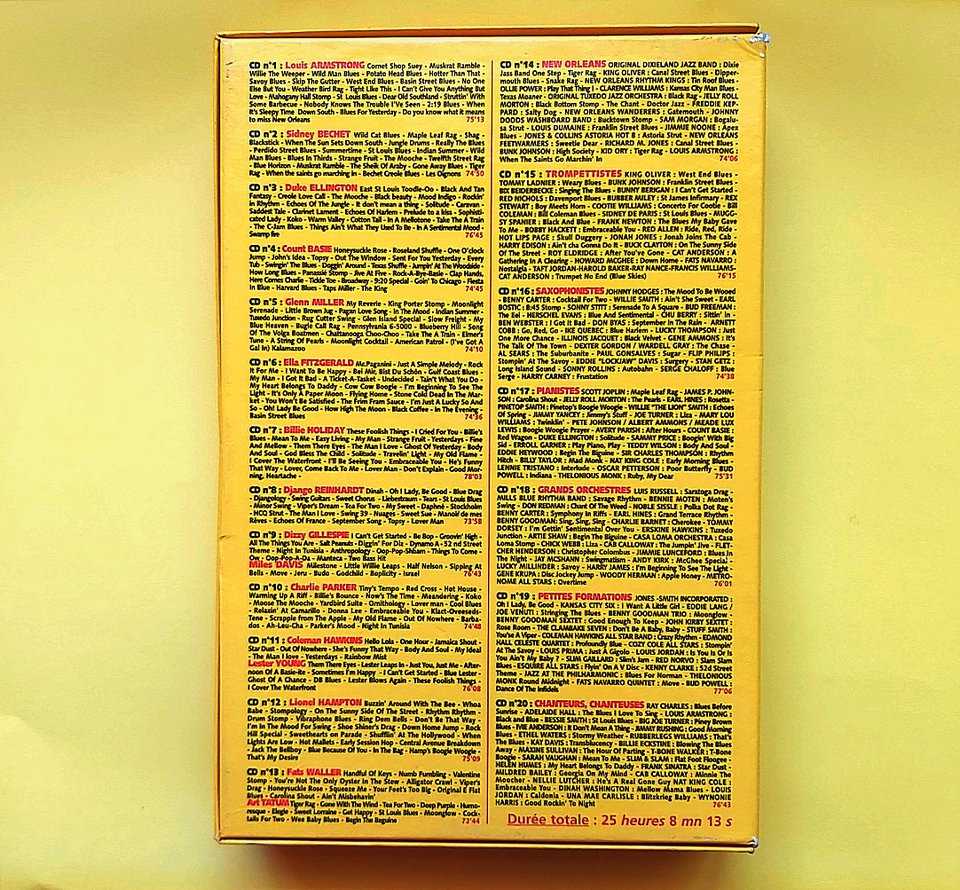 CD n°1 : Louis ARMSTRONG Cornet Shop Suey - Muskrat Ramble -
Willie The Weeper - Wild Man Blues - Potato Head Blues - Hotter Than That -
Savoy Blues - Skip The Gutter - West End Blues - Basin Street Blues - No One
Else But You - Weather Bird Rag - Tight Like This - I Can't Give You Anything But
Love - Mahogany Hall Stomp - St Louis Blues - Dear Old Southland - Struttin' With
Some Barbecue - Nobody Knows The Trouble I've Seen - 2:19 Blues - When
It's Sleepy Time Down South - Blues For Yesterday - Do you know what it means
to miss New Orleans 75'13
CD n°2 : Sidney BECHET Wild Cat Blues - Maple Leaf Rag - Shag -
Blackstick - When The Sun Sets Down South - Jungle Drums - Really The Blues
- Perdido Street Blues - Summertime - St Louis Blues - Indian Summer - Wild
Man Blues - Blues In Thirds - Strange Fruit - The Mooche - Twelfth Street Rag
- Blue Horizon - Muskrat Ramble - The Sheik Of Araby - Gone Away Blues - Tiger
Rag - When the saints go marching in - Bechet Creole Blues - Les Oignons 74'50
CD n°3 : Duke ELLINGTON East St Louis Toodle-Oo - Black And Tan
Fantasy - Creole Love Call - The Mooche - Black beauty - Mood Indigo - Rockin'
in Rhythm - Echoes Of The Jungle - It don't mean a thing - Solitude - Caravan -
Saddest Tale - Clarinet Lament - Echoes Of Harlem - Prelude to a kiss - Sophisti-
cated Lady - Koko - Warm Valley - Cotton Tail - In A Mellotone - Take The A Train
- The C-Jam Blues - Things Ain't What They Used To Be - In A Sentimental Mood -
Swamp fire 76'45
CD n°4 : Count BASIE Honeysuckle Rose - Roseland Shuffle - One O'clock
Jump - John's Idea - Topsy - Out The Window - Sent For You Yesterday - Every
Tub - Swingin' The Blues - Doggin' Around - Texas Shuffle - Jumpin' At The Woodside -
How Long Blues - Panassié Stomp - Jive At Five - Rock-A-Bye-Basie - Clap Hands,
Here Comes Charlie - Tickle Toe - Broadway - 9:20 Special - Goin' To Chicago - Fiesta
In Blue - Harvard Blues - Taps Miller - The King 74'45
CD n°5 : Glenn MILLER My Reverie - King Porter Stomp - Moonlight
Serenade - Little Brown Jug - Pagan Love Song - In The Mood - Indian Summer -
Tuxedo Junction - Rug Cutter Swing - Glen Island Special - Slow Freight - My
Blue Heaven - Bugle Call Rag - Pennsylvania 6-5000 - Blueberry Hill - Song
Of The Volga Boatmen - Chattanooga Choo-Choo - Take The A Train - Elmer's
Tune - A String Of Pearls - Moonlight Cocktail - American Patrol - (I've Got A
Gal In) Kalamazoo 74'10
CD n°6 : Ella FITZGERALD Mr.Paganini - Just A Simple Melody - Rock
It For Me - I Want To Be Happy - Bei Mir, Bist Du Schön - Gulf Coast Blues -
My Man - I Got It Bad - A Ticket-A-Tasket - Undecided - Tain't What You Do -
My Heart Belongs To Daddy - Cow Cow Boogie - I'm Beginning To See The
Light - It's Only A Paper Moon - Flying Home - Stone Cold Dead In The Mar-
ket - You Won't Be Satisfied - The Frim Fram Sauce - I'm Just A Lucky So And
So - Oh! Lady Be Good - How High The Moon - Black Coffee - In The Evening -
Basin Street Blues 74'36
CD n°7 : Billie HOLIDAY These Foolish Things - I Cried For You - Billie's
Blues - Mean To Me - Easy Living - My Man - Strange Fruit - Yesterdays - Fine
And Mellow - Them There Eyes - The Man I Love - Ghost Of Yesterday - Body
And Soul - God Bless The Child - Solitude - Travelin' Light - My Old Flame -
I Cover The Waterfront - I'll Be Seeing You - Embraceable You - He's Funny
That Way - Lover, Come Back To Me - Lover Man - Don't Explain - Good Mor-
ning, Heartache - 78'03
CD n°8 : Django REINHARDT Dinah - Oh I Lady, Be Good - Blue Drag
- Djangology - Swing Guitars - Sweet Chorus - Liebestraum - Tears - St Louis Blues
- Minor Swing - Viper's Dream - Tea For Two - My Sweet - Daphné - Stockholm
- HCQ Strut - The Man I Love - Swing 39 - Nuages - Sweet Sue - Manoir de mes
Rêves - Echoes Of France - September Song - Topsy - Lover Man 73'58
CD n°9 : Dizzy GILLESPIE I Can't Get Started - Be Bop - Groovin' High -
All The Things You Are - Salt Peanuts - Diggin' For Diz - Dynamo A - 52 nd Street
Theme - Night In Tunisia - Anthropology - Oop-Pop-Shbam - Things To Come -
Ow - Oop-Pop-A-Da - Manteca - Two Bass Hit
Miles DAVIS Milestone - Little Willie Leaps - Half Nelson - Sipping At
Bells - Move - Jeru - Budo - Godchild - Boplicity - Israel 76'43
CD n°10 : Charlie PARKER Tiny's Tempo - Red Cross - Hot House -
Warming Up A Riff - Billie's Bounce - Now's The Time - Meandering - Koko
- Moose The Mooche - Yardbird Suite - Ornithology - Lover man - Cool Blues
- Relaxin' At Camarillo - Donna Lee - Embraceable You - Klact-Oveseeds-
Tene - Scrapple From The Apple - My Old Flame - Out Of Nowhere - Barba-
dos - Ah-Leu-Cha - Parker's Mood - Night In Tunisia 74'48
CD n°11 : Coleman HAWKINS Hello Lola - One Hour - Jamaica Shout -
Star Dust - Out Of Nowhere - She's Funny That Way - Body And Soul - My Ideal
- The Man I love - Yesterdays - Rainbow Mist
Lester YOUNG Them There Eyes - Lester Leaps In - Just You, Just Me - After-
noon Of A Basie-ite - Sometimes I'm Happy - I Can't Get Started - Blue Lester -
Ghost Of A Chance - DB Blues - Lester Blows Again - These Foolish Things -
I Cover The Waterfront 76'08
CD n°12 : Lionel HAMPTON Buzzin' Around With The Bee - Whoa
Babe - Stompology - On The Sunny Side Of The Street - Rhythm Rhythm -
Drum Stomp - Vibraphone Blues - Ring Dem Bells - Don't Be That Way -
I'm In The Mood For Swing - Shoe Shiner's Drag - Down Home Jump - Rock
Hill Special - Sweethearts on Parade - Shufflin' At The Hollywood - When
Lights Are Low - Hot Mallets - Early Session Hop - Central Avenue Breakdown
- Jack The Bellboy - Blue Because Of You - In The Bag - Hamp's Boogie Woogie -
That's My Desire 75'09
CD n°13 : Fats WALLER Handful Of Keys - Numb Fumbling - Valentine
Stomp - You're Not The Only Oyster In The Stew - Alligator Crawl - Viper's
Drag - Honeysuckle Rose - Squeeze Me - Your Feet's Too Big - Original E Flat
Blues - Carolina Shout - Ain't Misbehavin'
Art TATUM Tiger Rag - Gone With The Wind - Tea For Two - Deep Purple - Humo-
resque - Elegie - Sweet Lorraine - Get Happy - St Louis Blues - Moonglow - Cock-
tails For Two - Wee Baby Blues - Begin The Beguine 72'44
CD n°14 : NEW ORLEANS ORIGINAL DIXIELAND JAZZ BAND : Dixie
Jass Band One Step - Tiger Rag - KING OLIVER : Canal Street Blues - Dipper-
mouth Blues - Snake Rag - NEW ORLEANS RHYTHM KINGS : Tin Roof Blues -
OLLIE POWER : Play That Thing ! - CLARENCE WILLIAMS : Kansas City Man Blues -
Texas Moaner - ORIGINAL TUXEDO JAZZ ORCHESTRA : Black Rag - JELLY ROLL
MORTON : Black Bottom Stomp - The Chant - Doctor Jazz - FREDDIE KEP-
PARD : Salty Dog - NEW ORLEANS WANDERERS : Gatemouth - JOHNNY
DODDS WASHBOARD BAND : Bucktown Stomp - SAM MORGAN : Bogalu-
sa Strut - LOUIS DUMAINE : Franklin Street Blues - JIMMIE NOONE : Apex
Blues - JONES & COLLINS ASTORIA HOT 8 : Astoria Strut - NEW ORLEANS
FEETWARMERS : Sweetie Dear - RICHARD M. JONES : Canal Street Blues -
BUNK JOHNSON : High Society - KID ORY : Tiger Rag - LOUIS ARMSTRONG :
When The Saints Go Marchin' In 74'06
CD n°15 : TROMPETTISTES KING OLIVER : West End Blues -
TOMMY LADNIER : Weary Blues - BUNK JOHNSON : Franklin Street Blues -
BIX BEIDERBECKE : Singing The Blues - BUNNY BERIGAN : I Can't Get Started -
RED NICHOLS : Davenport Blues - BUBBER MILEY : St James Infirmary - REX
STEWART : Boy Meets Horn - COOTIE WILLIAMS : Concerto For Cootie - Bill
COLEMAN : Bill Coleman Blues - SIDNEY DE PARIS : St Louis Blues - MUGG-
SY SPANIER : Black And Blue - FRANK NEWTON : The Blues My Baby Gave
To Me - BOBBY HACKETT : Embraceable You - RED ALLEN : Ride, Red, Ride -
HOT LIPS PAGE : Skull Duggery - JONAH JONES : Jonah Joins The Cab -
HARRY EDISON : Ain't cha Gonna Do It - BUCK CLAYTON : On The Sunny Side
Of The Street - ROY ELDRIDGE : After You've Gone - CAT ANDERSON :
Gathering In A Clearing - HOWARD MCGHEE : Down Home - FATS NAVARRO :
Nostalgia - TAFT JORDAN-HAROLD BAKER-RAY NANCE-FRANCIS WILLIAMS-
CAT ANDERSON : Trumpet No End (Blue Skies) 76'15
CD n°16 : SAXOPHONISTES JOHNNY HODGES : The Mood To Be Wooed
- BENNY CARTER : Cocktail For Two - WILLIE SMITH : Ain't She Sweet - EARL
BOSTIC : 8:45 Stomp - SONNY STITT : Serenade To A Square - BUD FREEMAN :
The Eel - HERSCHEL EVANS : Blue And Sentimental - CHU BERRY : Sittin' In -
BEN WEBSTER : I Got It Bad - DON BYAS : September In The Rain - ARNETT
COBB : Go, Red, Go - IKE QUEBEC : Blue Harlem - LUCKY THOMPSON : Just
One More Chance - ILLINOIS JACQUET : Black Velvet - GENE AMMONS : It's
The Talk Of The Town - DEXTER GORDON / WARDELL GRAY : The Chase -
AL SEARS : The Suburbanite - PAUL GONSALVES : Sugar - FLIP PHILIPS :
Stompin' At The Savoy - EDDIE "LOCKJAW" DAVIS : Surgery - STAN GETZ :
Long Island Sound - SONNY ROLLINS : Autobahn - SERGE CHALOFF : Blue
Serge - HARRY CARNEY : Frustation 74'38
CD n°17 : PIANISTES SCOTT JOPLIN : Maple Leaf Rag - JAMES P. JOHN-
SON : Carolina Shout - JELLY ROLL MORTON : The Pearls - EARL HINES : Rosetta -
PINETOP SMITH : Pinetop's Boogie Woogie - WILLIE "THE LION" SMITH : Echoes
Of Spring - JIMMY YANCEY : Jimmy's Stuff - JOE TURNER : Liza - MARY LOU
WILLIAMS : Twinklin' - PETE JOHNSON / ALBERT AMMONS / MEADE LUX
LEWIS : Boogie Woogie Prayer - AVERY PARISH : After Hours - COUNT BASIE :
Red Wagon - DUKE ELLINGTON : Solitude - SAMMY PRICE : Boogin' With Big
Sid - ERROLL GARNER : Play Piano, Play - TEDDY WILSON : Body And Soul -
EDDIE HEYWOOD : Begin The Beguine - SIR CHARLES THOMPSON : Rhythm
Hitch - BILLY TAYLOR : Mad Monk - NAT KING COLE : Early Morning Blues -
LENNIE TRISTANO : Interlude - OSCAR PETTERSON : Poor Butterfly - BUD
POWELL : Indiana - THELONIOUS MONK : Ruby, My Dear 75'31
CD n°18 : GRANDS ORCHESTRES LUIS RUSSELL : Saratoga Drag -
MILLS BLUE RHYTHM BAND : Savage Rhythm - BENNIE MOTEN : Moten's
Swing - DON REDMAN : Chant Of The Weed - NOBLE SISSLE : Polka Dot Rag -
BENNY CARTER : Symphony In Riffs - EARL HINES : Grand Terrace Rhythm -
BENNY GOODMAN : Sing, Sing, Sing - CHARLIE BARNET : Cherokee - TOMMY
DORSEY : I'm Gettin' Sentimental Over You - ERSKINE HAWKINS : Tuxedo
Junction - ARTIE SHAW : Begin The Beguine - CASA LOMA ORCHESTRA : Casa
Loma Stomp - CHICK WEBB : Liza - CAB CALLOWAY : The Jumpin' Jive - FLET-
CHER HENDERSON : Christopher Colombus - JIMMIE LUNCEFORD : Blues In
The Night - JAY MCSHANN : Swingmatism - ANDY KIRK : McGhee Special -
LUCKY MILLINDER : Savoy - HARRY JAMES : I'm Beginning To See The Light -
GENE KRUPA : Disc Jockey Jump - WOODY HERMAN : Apple Honey - METRO-
NOME ALL STARS : Overtime 76'01
CD n°19 : PETITES FORMATIONS JONES -SMITH INCORPORATED :
Oh ! Lady, Be Good - KANSAS CITY SIX : I Want A Little Girl - EDDIE LANG /
JOE VENUTI : Stringing The Blues - BENNY GOODMAN TRIO : Moonglow -
BENNY GOODMAN SEXTET : Good Enough To Keep - JOHN KIRBY SEXTET :
Rose Room - THE CLAMBAKE SEVEN : Don't Be A Baby, Baby - STUFF SMITH :
You'se A Viper - COLEMAN HAWKINS ALL STAR BAND : Crazy Rhythm - EDMOND
HALL CELESTE QUARTET : Profoundly Blue - COZY COLE ALL STARS : Stompin'
At The Savoy - LOUIS PRIMA : Just A Gigolo - LOUIS JORDAN : Is You Is Or Is
You Ain't My Baby ? - SLIM GAILLARD : Slim's Jam - RED NORVO : Slam Slam
Blues - ESQUIRE ALL STARS : Flyin' On A V Disc - KENNY CLARKE : 52d Street
Theme - JAZZ AT THE PHILHARMONIC : Blues For Norman - THELONIOUS
MONK Round Midnight - FATS NAVARRO QUINTET : Move - BUD POWELL :
Dance Of The Infidels 77'06
CD n°20 : CHANTEURS, CHANTEUSES RAY CHARLES : Blues Before
Sunrise - ADELAIDE HALL : The Blues I Love To Sing - LOUIS ARMSTRONG :
Black and Blue - BESSIE SMITH : St Louis Blues - BIG JOE TURNER : Piney Brown
Blues - IVIE ANDERSON : It Don't Mean A Thing - JIMMY RUSHING : Good Morning
Blues - ETHEL WATERS : Stormy Weather - RUBBERLEGS WILLIAMS : That's
The Blues - KAY DAVIS : Transblucency - BILLIE ECKSTINE : Blowing The Blues
Away - MAXINE SULLIVAN : The Hour Of Parting - T-BONE WALKER : T-Bone
Boogie - SARAH VAUGHAN : Mean To Me - SLIM & SLAM : Flat Foot Floogee -
HELEN HUMES : My Heart Belongs To Daddy - FRANK SINATRA : Star Dust -
MILDRED BAILEY : Georgia On My Mind - CAB CALLOWAY : Minnie The
Moocher - NELLIE LUTCHER : He's A Real Gone Guy NAT KING COLE :
Embraceable You - DINAH WASHINGTON : Mellow Mama Blues - LOUIS
JORDAN : Caldonia - UNA MAE CARLISLE : Blitzkrieg Baby - WYNONIE
HARRIS : Good Rockin' To Night 76'43
Durée totale : 25 heures 8 mn 13 s